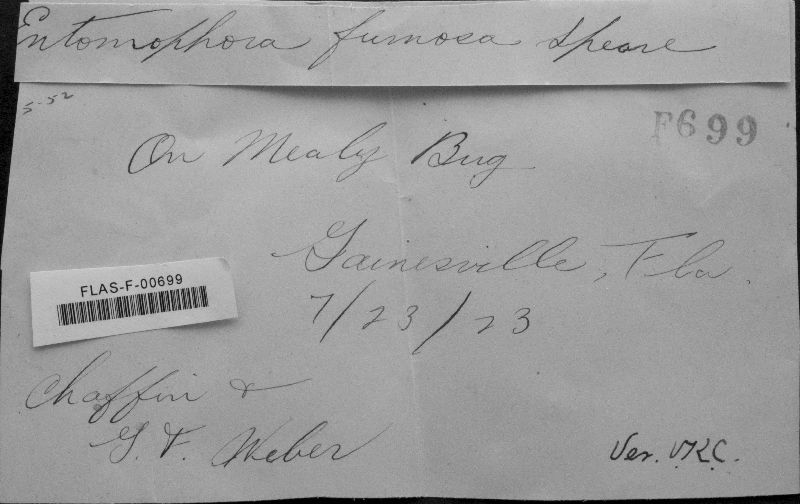 Entomophora fumosa Speare
5-52
F699
On Mealy Bug
Gainesville, Fla.
FLAS-F-00699
7/23/23
Chaffin &
G. F. Weber
Ver. VKC.